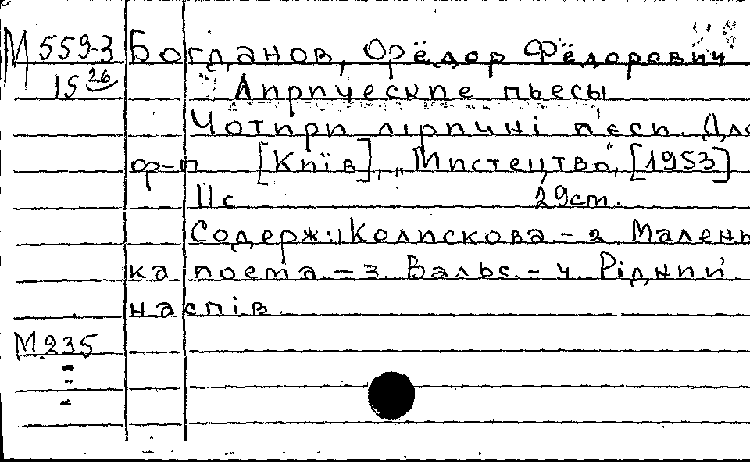 М 559-3 Богданов, Фрёдор Фёдорович
15 26 Лирические пьесы
Чотири лiричнi пєси Для
ф-п [Київ], „Мистецтво", [1953]
11 с 29 ст.
Содерж: 1 Колискова - 2 Малень
ка поета - 3 Вальс - 4 Рідний
наспів
М 235